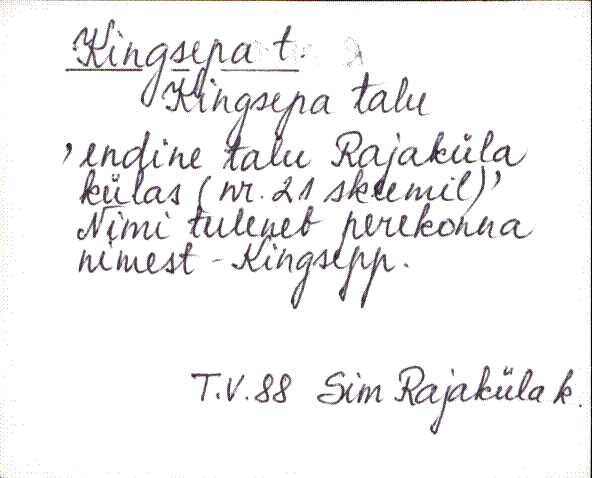 Kingsepa t.
Kingsepa talu
'endine talu Rajaküla
külas (nr. 21 skeemil)'
Nimi tuleneb perekonna
nimest - Kingsepp.
T.V.88 Sim Rajaküla k.